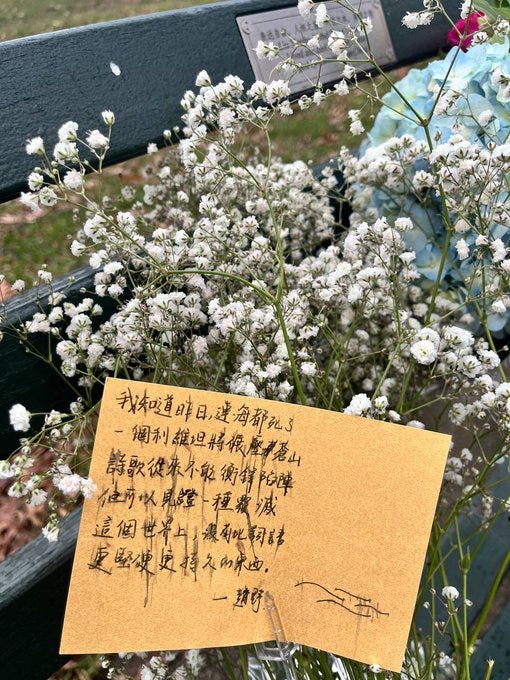 我知道昨日,連海都死了
一個利維坦將很壓著蒼山
詩歌從來不能衝鋒陷陣
但可以見證一種毀滅
這個世界上,沒有比詞語
更堅硬更持久的東西。
一趙野